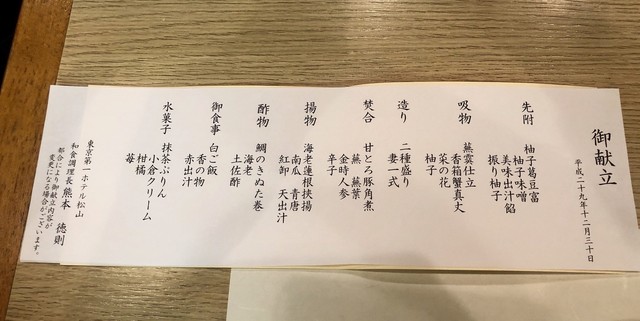 御献立
平成二十九年十二月三十日
先附　柚子葛豆富
柚子味噌
美味出汁餡
振り柚子
吸物　蕪霙仕立
香箱蟹真丈
菜の花
柚子
造り　二種盛り
妻一式
焚合　甘とろ豚角煮
蕪　蕪葉
金時人参
辛子
揚物　海老蓮根挟揚
南瓜　青唐
紅卸　天出汁
酢物　鯛のきぬた巻
海老
土佐酢
御食事　白ご飯
香の物
赤出汁
水菓子　抹茶ぷりん
小倉クリーム
柑橘
苺
東京第一ホテル松山
和食調理長　熊本　徳則
都合により御献立内容が
変更になる場合がございます。